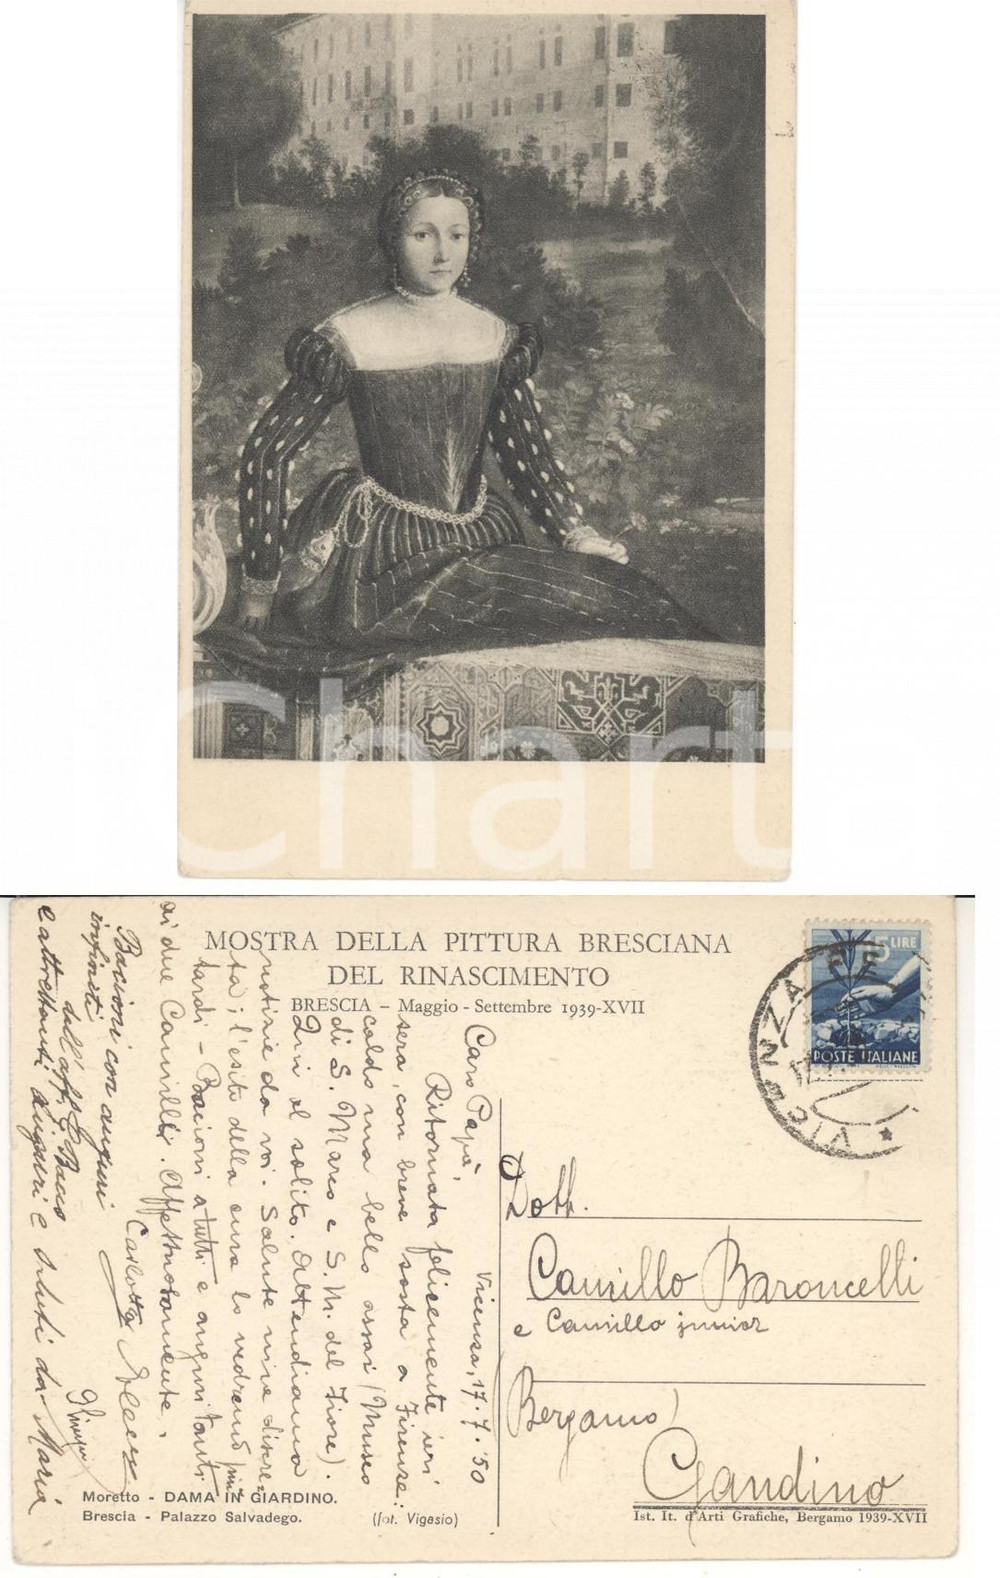 iCharta
MOSTRA DELLA PITTURA BRESCIANA
DEL RINASCIMENTO
BRESCIA - Maggio - Settembre 1939-XVII
15 LIRE
POSTE ITALIANE
VICENZA
Vicenza, 17.7.'50
Caro Papà,
Ritornata felicemente ieri
sera, con breve sosta a Firenze:
caldo ma bello assai (Museo
di S. Marco e S. M. del Fiore).
Qui al solito. Attendiamo
notizie da voi. Salute mia discre-
ta; l'esito della cura lo vedremo più
tardi - Bacioni a tutti e auguri tanti
ai due Camilli. Affettuosamente.
Carlotta
Bacioni con auguri
infiniti
dall'aff.
e altrettanti auguri e saluti da Maria
Dott.
Camillo Baroncelli
e Camillo junior
Bergamo)
Gandino
Moretto - DAMA IN GIARDINO.
Brescia - Palazzo Salvadego.
(fot. Vigasio)
Ist. It. d'Arti Grafiche, Bergamo 1939-XVII